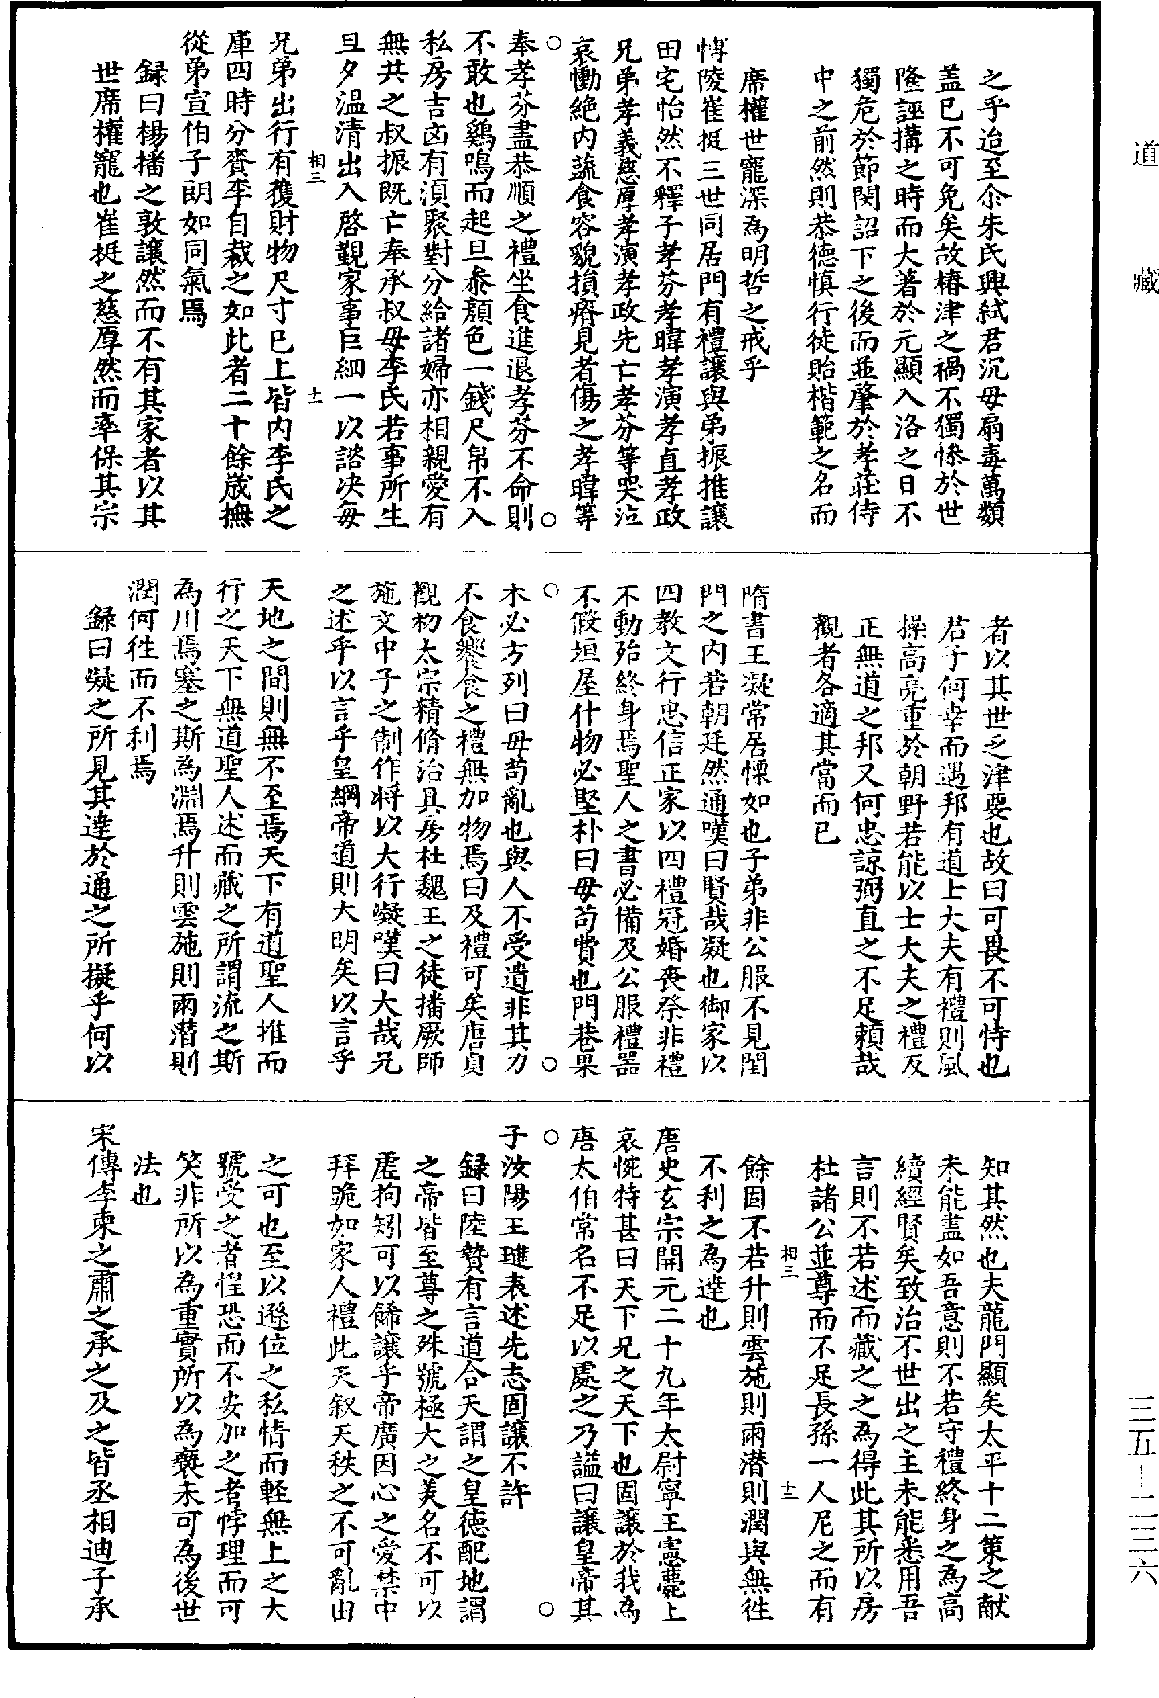 道藏
三五—二三六
之乎迨至尒朱氏興弒君沉母扇毒萬類
盖已不可免矣故椿津之禍不獨慘於世
隆誣搆之時而大著於元顯入洛之日不
獨危於節閔詔下之後而並肇於孝莊侍
中之前然則恭德慎行徒貽楷範之名而
席權世寵深為明哲之戒乎
愽陵崔挺三世同居門有禮讓與弟振推讓
田宅怡然不釋子孝芬孝暐孝演孝直孝政
兄弟孝義慈厚孝演孝政先亡孝芬等哭泣
哀慟絶内蔬食容貌損瘠見者傷之孝暐等
奉孝芬盡恭順之禮坐食進退孝芬不命則
不敢也鷄鳴而起旦叅顔色一錢尺帛不入
私房吉凶有湏聚對分給諸婦亦相親愛有
無共之叔振既亡奉承叔母李氏若事所生
旦夕温清出入啓覲家事巨細一以諮决每
相三
十一
兄弟出行有獲財物尺寸已上皆内李氏之
庫四時分賚李自裁之如此者二十餘歲撫
從弟宣伯子朗如同氣焉
録曰楊播之敦讓然而不有其家者以其
世席權寵也崔挺之慈厚然而率保其宗
者以其世乏津要也故曰可畏不可恃也
君子何幸而遇邦有道上大夫有禮則風
操高亮重於朝野若能以士大夫之禮及
正無道之邦又何忠諒弼直之不足賴哉
觀者各適其當而已
隋書王凝常居慄如也子弟非公服不見閨
門之内若朝廷然通嘆曰賢哉凝也御家以
四教文行忠信正家以四禮冠婚喪祭非禮
不動殆終身焉聖人之書必備及公服禮器
不假垣屋什物必堅朴曰毋苟費也門巷果
木必方列曰毋苟亂也與人不受遺非其力
不食饗食之禮無加物焉曰及禮可矣唐貞
觀初太宗精脩治具房杜魏王之徒播厥師
施文中子之制作將以大行凝嘆曰大哉兄
之述乎以言乎皇綱帝道則大明矣以言乎
天地之間則無不至焉天下有道聖人推而
行之天下無道聖人述而藏之所謂流之斯
為川焉塞之斯為淵焉升則雲施則雨潜則
潤何往而不利焉
録曰凝之所見其達於通之所擬乎何以
知其然也夫龍門顯矣太平十二策之献
未能盡如吾意則不若守禮終身之為高
續經賢矣致治不世出之主未能悉用吾
言則不若述而藏之之為得此其所以房
杜諸公並尊而不足長孫一人尼之而有
相三
十二
餘固不若升則雲施則雨潜則潤與無往
不利之為達也
唐史玄宗開元二十九年太尉寧王憲薨上
哀惋特甚曰天下兄之天下也固讓於我為
唐太伯常名不足以處之乃謚曰讓皇帝其
子汝陽王璡表述先志固讓不許
録曰陸贄有言道合天謂之皇德配地謂
之帝皆至尊之殊號極大之美名不可以
虚拘矧可以餙讓乎帝廣因心之愛禁中
拜跪如家人禮此天叙天秩之不可亂由
之可也至以遜位之私情而輕無上之大
號受之者惶恐而不安加之者悖理而可
笑非所以為重實所以為褻未可為後世
法也
宋傳李柬之肅之承之及之皆丞相迪子承